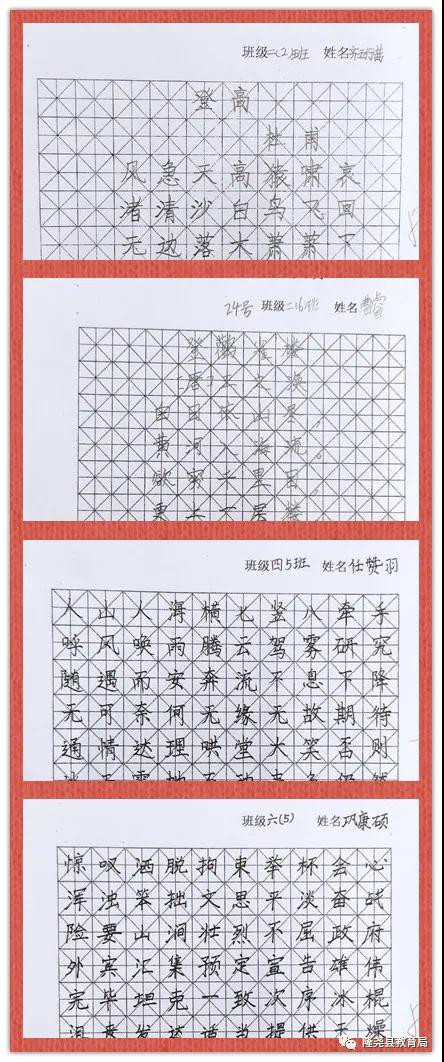 班级二(2)班 姓名
登高
杜甫
风急天高猿啸哀
渚清沙白鸟飞回
无边落木萧萧下
24号 班级二16班 姓名曹睿
登鹳雀楼
(唐)王之涣
白日依山尽
黄河入海流。
欲穷千里目
更上一层楼
班级四5班 姓名任赞羽
人山人海横七竖八牵手
呼风唤雨腾云驾雾研究
随遇而安奔流不息下降
无可奈何无缘无故期待
通情达理哄堂大笑否则
班级六(5) 姓名巩康硕
惊叹洒脱拘束举杯会心
浑浊笨拙文思平淡奋战
险要山涧壮烈不屈政府
外宾汇集预定宣告雄伟
完毕坦克一致次序冰棍
隆尧县教育局